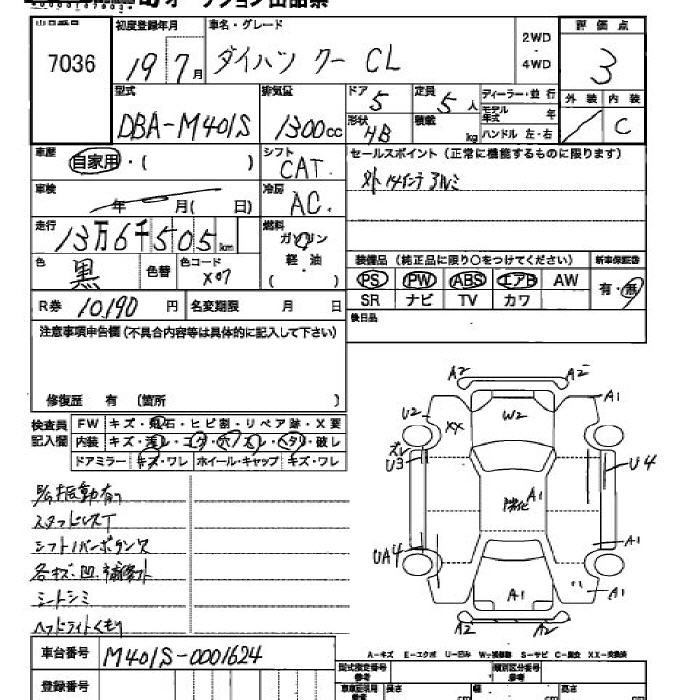 オークション出品票
出品番号 初度登録年月 車名・グレード 評価点
7036 19 7月 ダイハツ クー CL 2WD ・ 4WD 3
型式 排気量 ドア 5 定員 5人 ディーラー・並行 外装 内装
DBA-M401S 1300cc 形状 HB 積載 kg モデル年式 年 C
ハンドル 左・右
車歴 自家用・( ) シフト CAT セールスポイント(正常に機能するものに限ります)
車検 年 月( 日) 冷房 AC 14インチアルミ
走行 13万6千505km 燃料 ガソリン
軽油
( )
色 黒 色替 色コード X07 装備品(純正品に限り○をつけてください) 新車保証書
PS PW ABS エアB AW 有・無
R券 10,190円 名変期限 月 日 SR ナビ TV カワ
注意事項申告欄(不具合内容等は具体的に記入して下さい) 後日品
修復歴 有 (箇所 )
検査員記入欄 FW キズ・飛石・ヒビ割・リペア跡・X要
内装 キズ・汚レ・コゲ・穴・スレ・ヘタリ・破レ
ドアミラー キズ・ワレ ホイール・キャップ キズ・ワレ
A2 A2
U2 XX W2 A1
ズレ
U3 U4
A1
UA4 A1
A1 A1
A2 A2
振動有り
スタッドレスT
シフトノブボタンワレ
各キズ、凹、補修跡
シートシミ
ヘッドライトくもり
A-キズ E-エクボ U-凹み W-補修跡 S-サビ C-腐食 XX-交換済
車台番号 M401S-0001624
型式指定番号 参考 類別区分番号 参考
登録番号 長さ cm 幅 cm 高さ cm